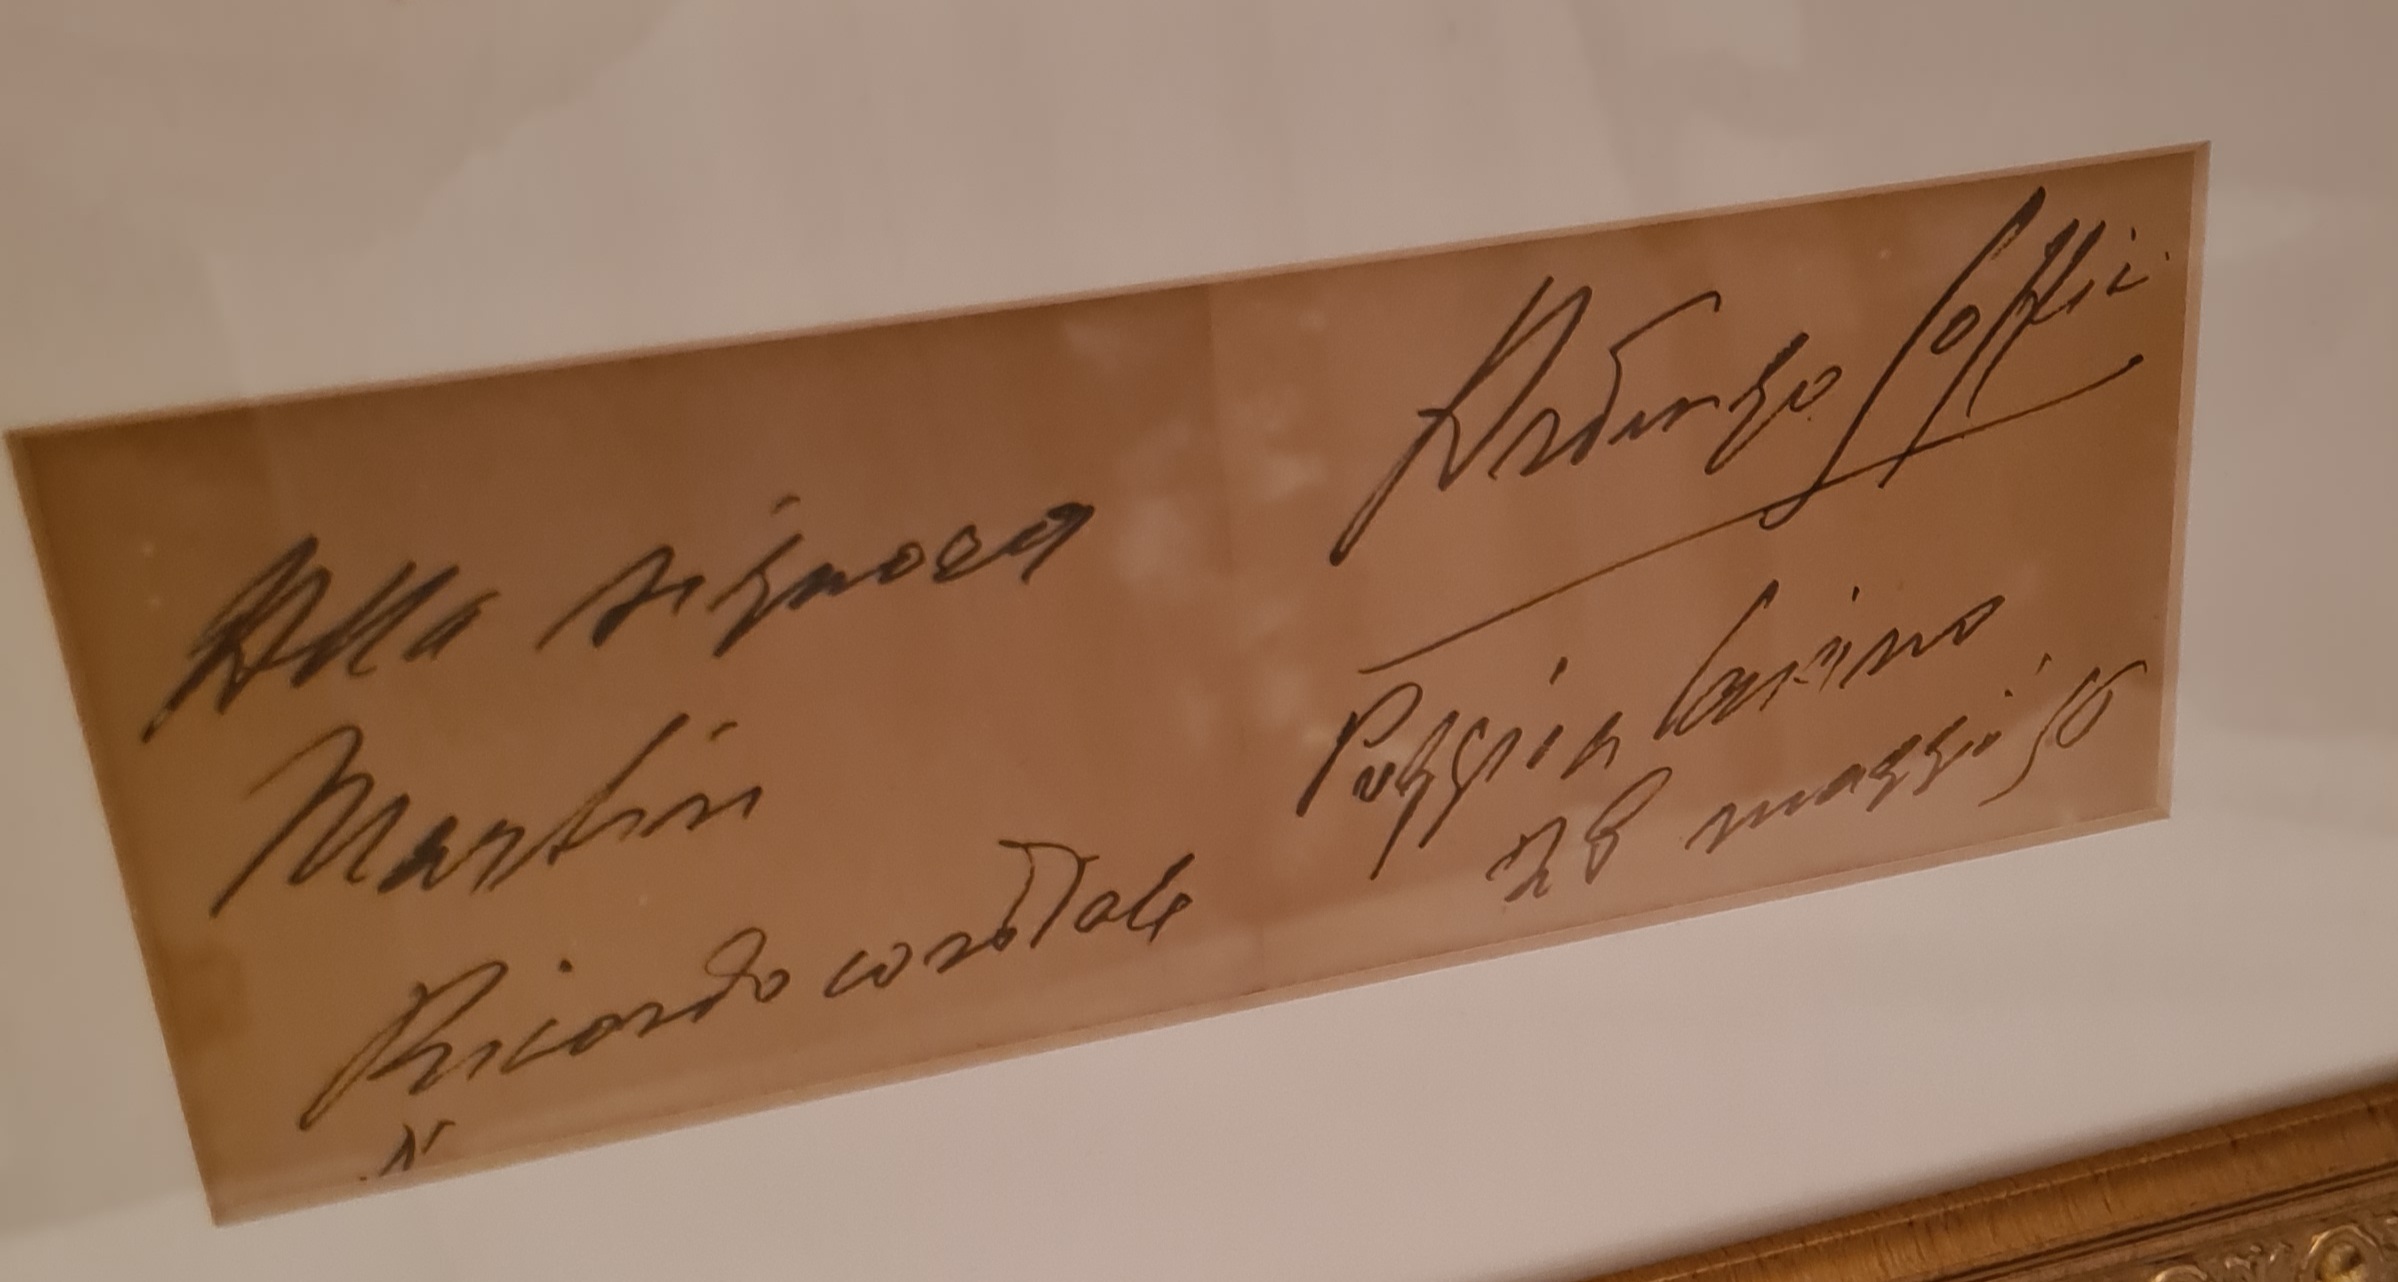 Alla signora
Martini
Ricordo cordiale
Ardengo Soffici
Poggio a Caiano
28 maggio